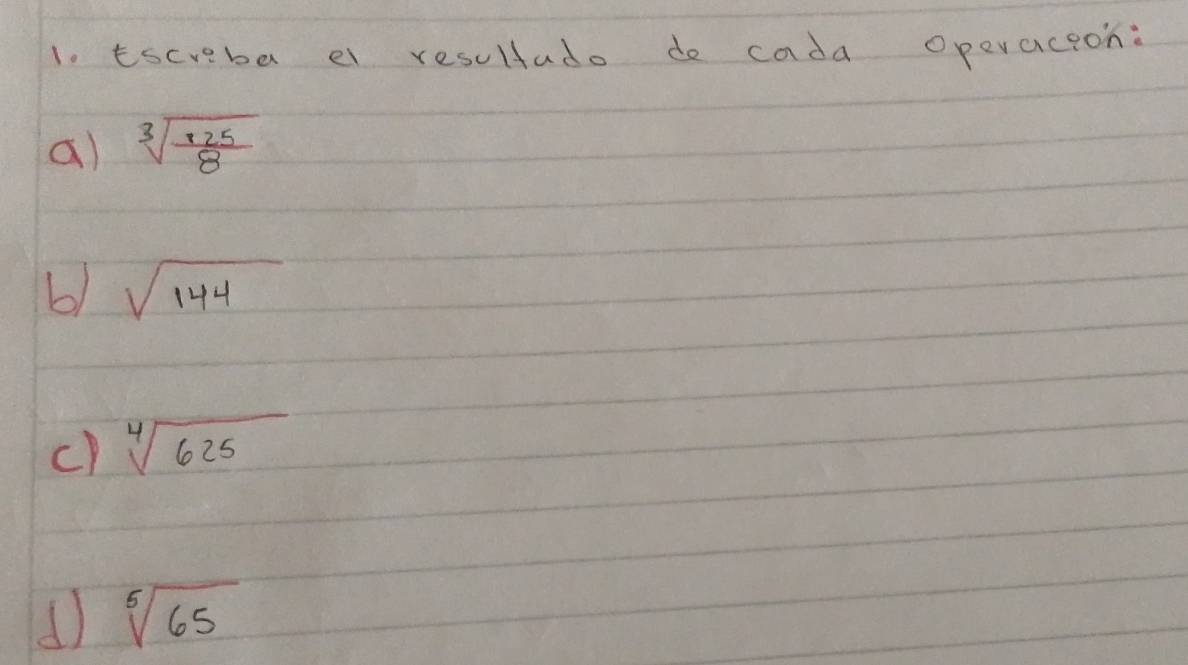 1. Escriba el resultado de cada operación:
a) ∛(125/8)
b) √144
c) ∜625
d) ⁵√65